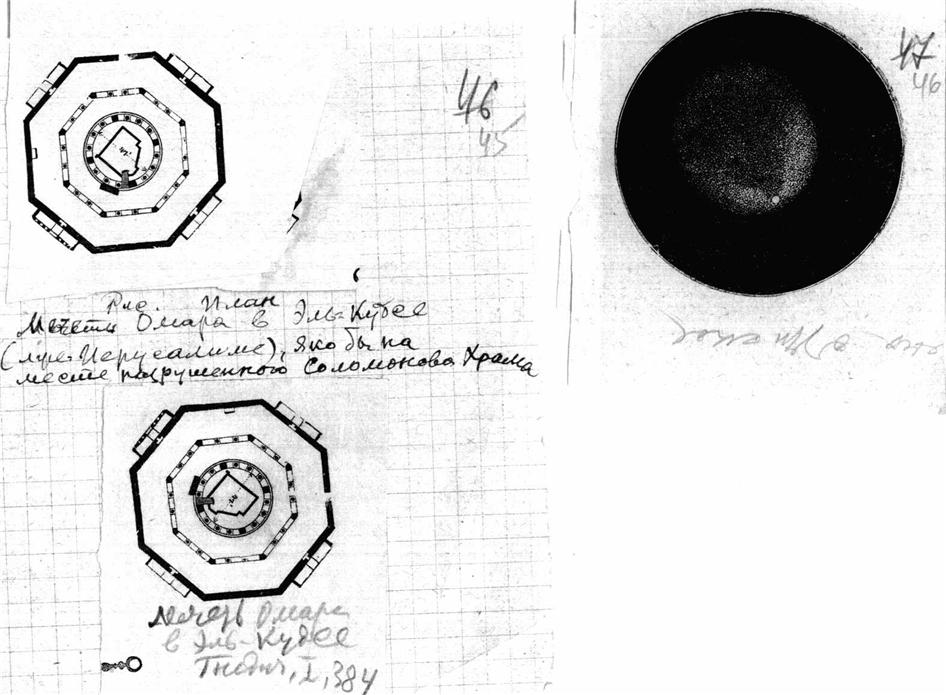 46
45
Рис. План
Мечети Омара в Эль-Кудсе
(лже-Иерусалиме), якобы на
месте разрушенного Соломонова Храма
мечеть Омара
в Эль-Кудсе
Гнедич, I, 384
47
46